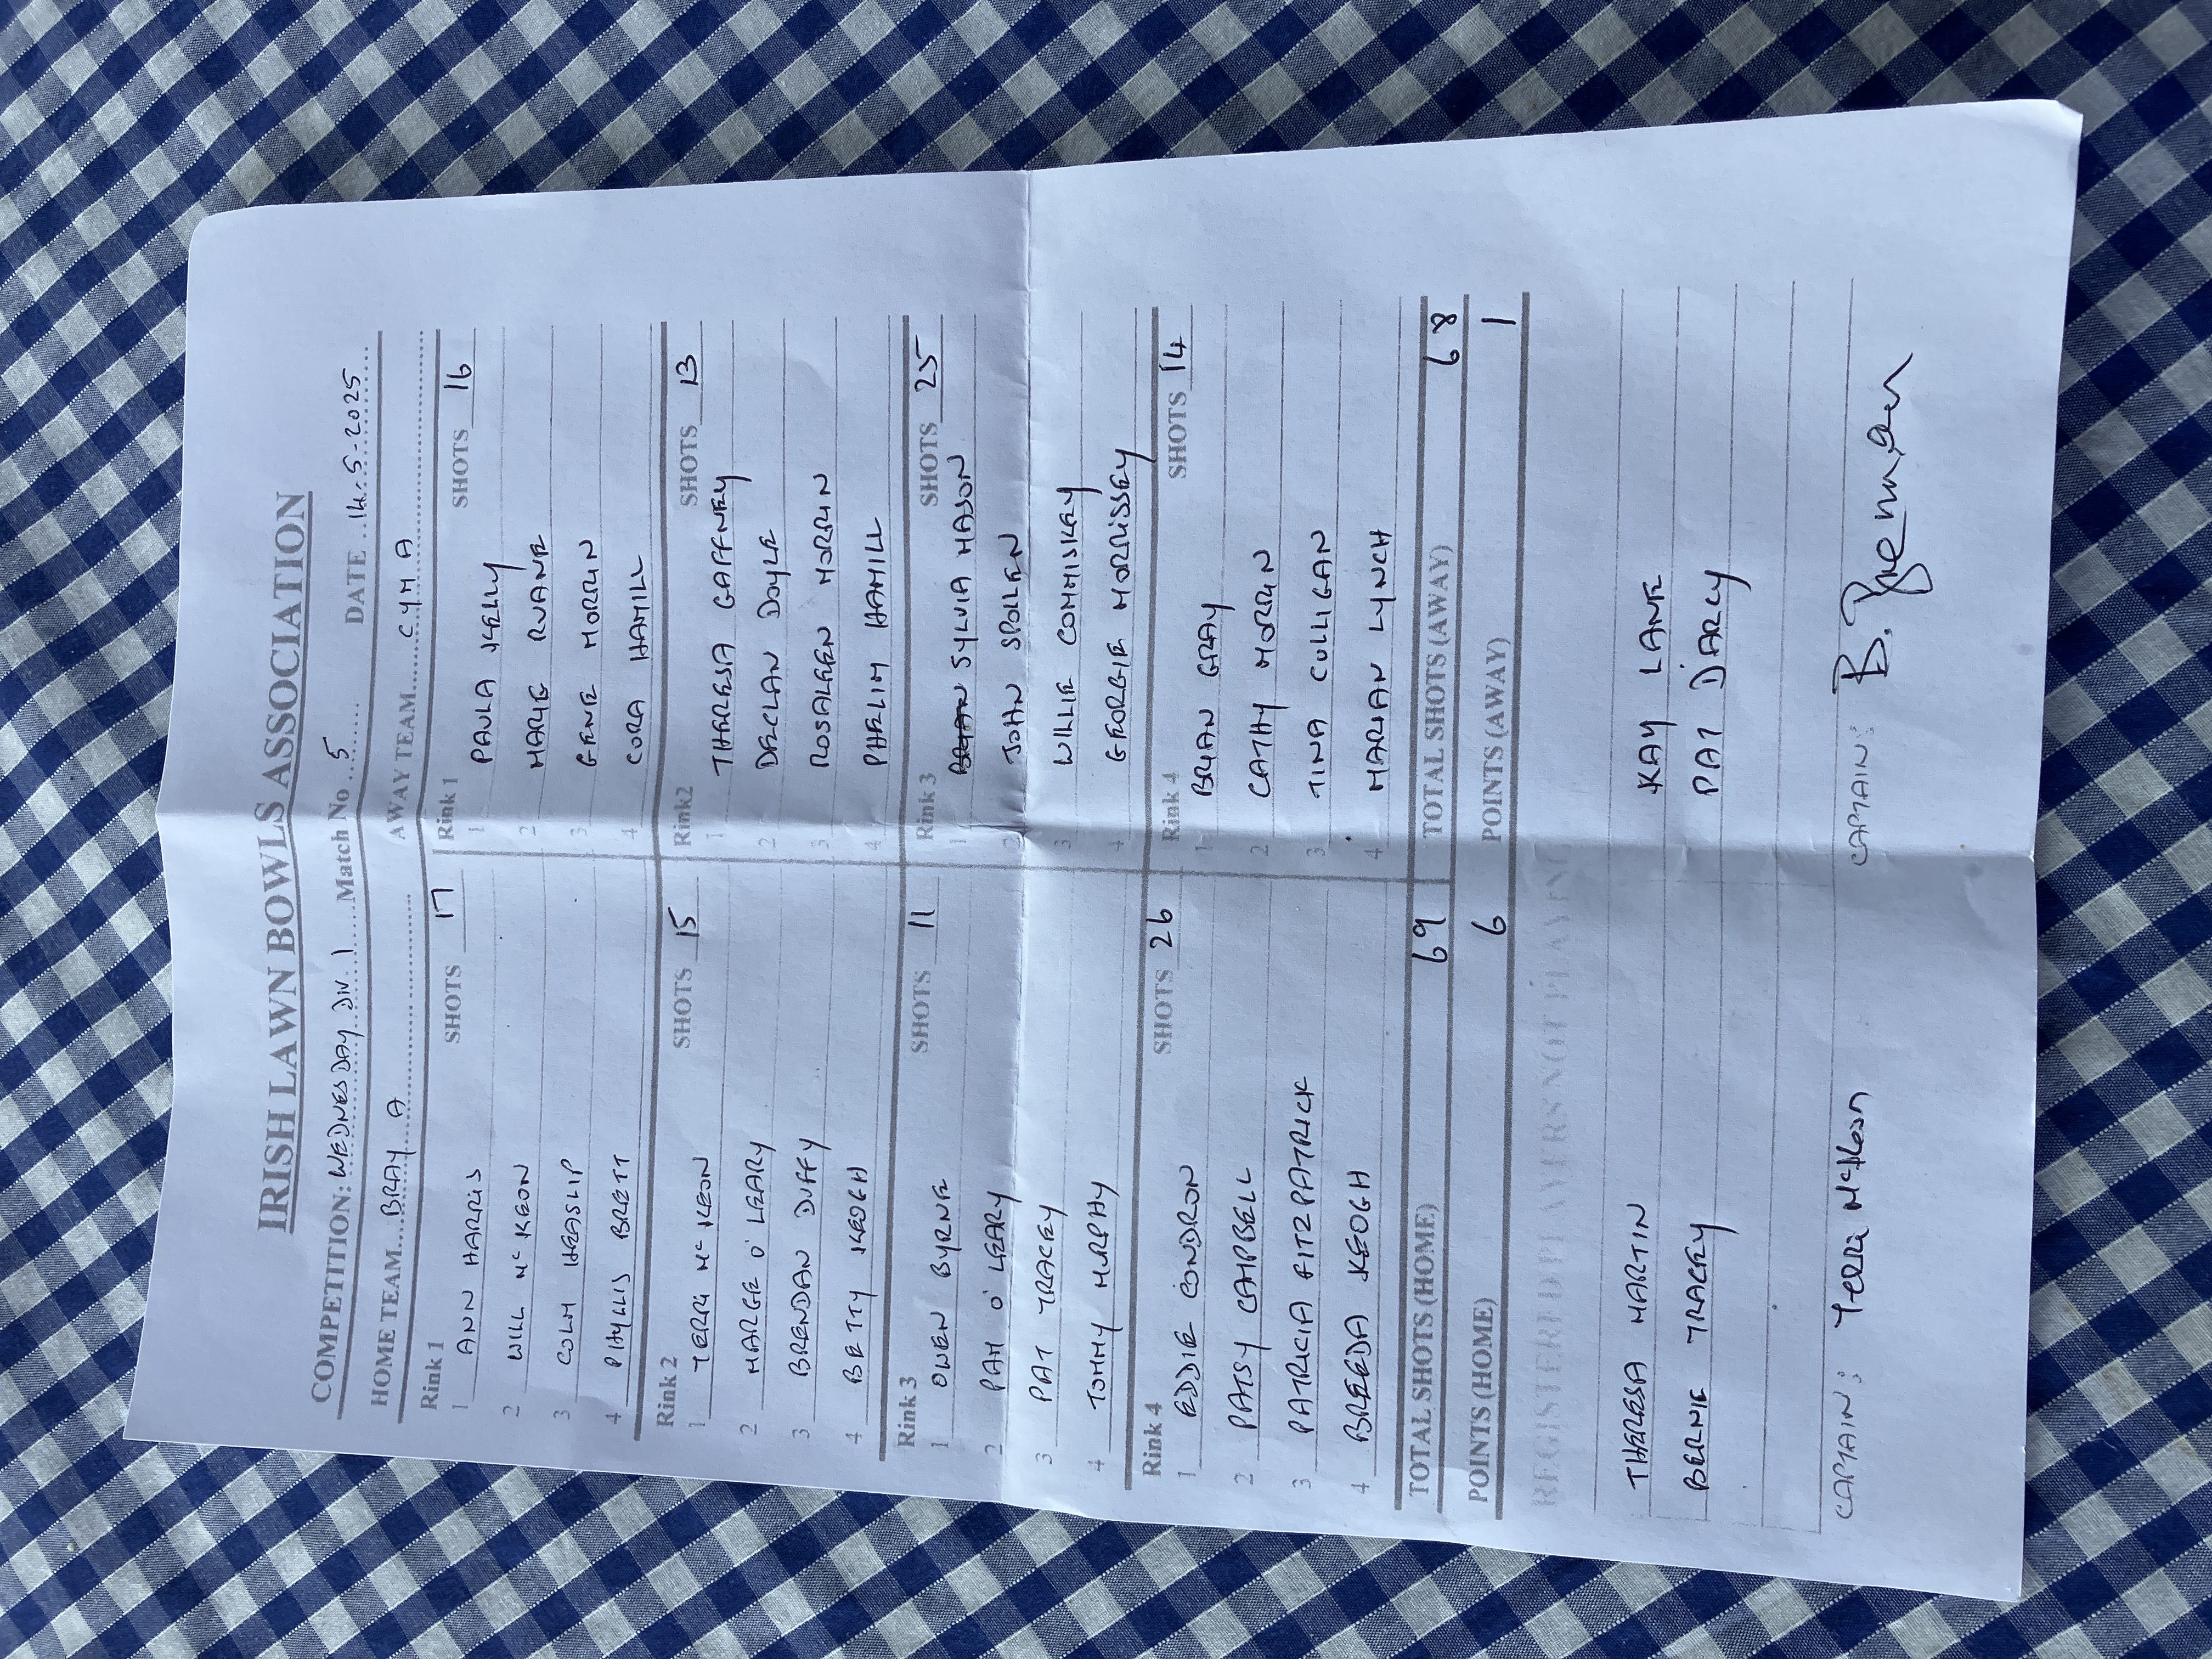 IRISH LAWN BOWLS ASSOCIATION
COMPETITION: WEDNESDAY DIV. 1 Match No 5 DATE 14-5-2025
HOME TEAM BRAY A AWAY TEAM CYM A
Rink 1 SHOTS 17 Rink 1 SHOTS 16
1 ANN HARRIS 1 PAULA KELLY
2 WILL McKEON 2 MARIE RUANE
3 COLM HEASLIP 3 GENE MORRIN
4 PHYLLIS BRETT 4 CORA HAMILL
Rink 2 SHOTS 15 Rink2 SHOTS 13
1 TERRI McKEON 1 THERESA GAFFNEY
2 MARGE O'LEARY 2 DECLAN DOYLE
3 BRENDAN DUFFY 3 ROSALEEN MORRIN
4 BETTY KEOGH 4 PHELIM HAMILL
Rink 3 SHOTS 11 Rink 3 SHOTS 25
1 OWEN BYRNE 1 SYLVIA MASON
2 PAM O'LEARY 2 JOHN SPOLLEN
3 PAT TRACEY 3 WILLIE COMMISKEY
4 TOMMY MURPHY 4 GEORGIE MORRISSEY
Rink 4 SHOTS 26 Rink 4 SHOTS 14
1 EDDIE CONDRON 1 BRIAN GRAY
2 PATSY CAMPBELL 2 CATHY MORRIN
3 PATRICIA FITZPATRICK 3 TINA CULLIGAN
4 BREEDA KEOGH 4 MARIAN LYNCH
TOTAL SHOTS (HOME) 69 TOTAL SHOTS (AWAY) 68
POINTS (HOME) 6 POINTS (AWAY) 1
REGISTERED PLAYERS NOT PLAYING
THERESA MARTIN KAY LANE
BERNIE TRACEY PAT D'ARCY
CAPTAIN: Terri McKeon CAPTAIN: B.